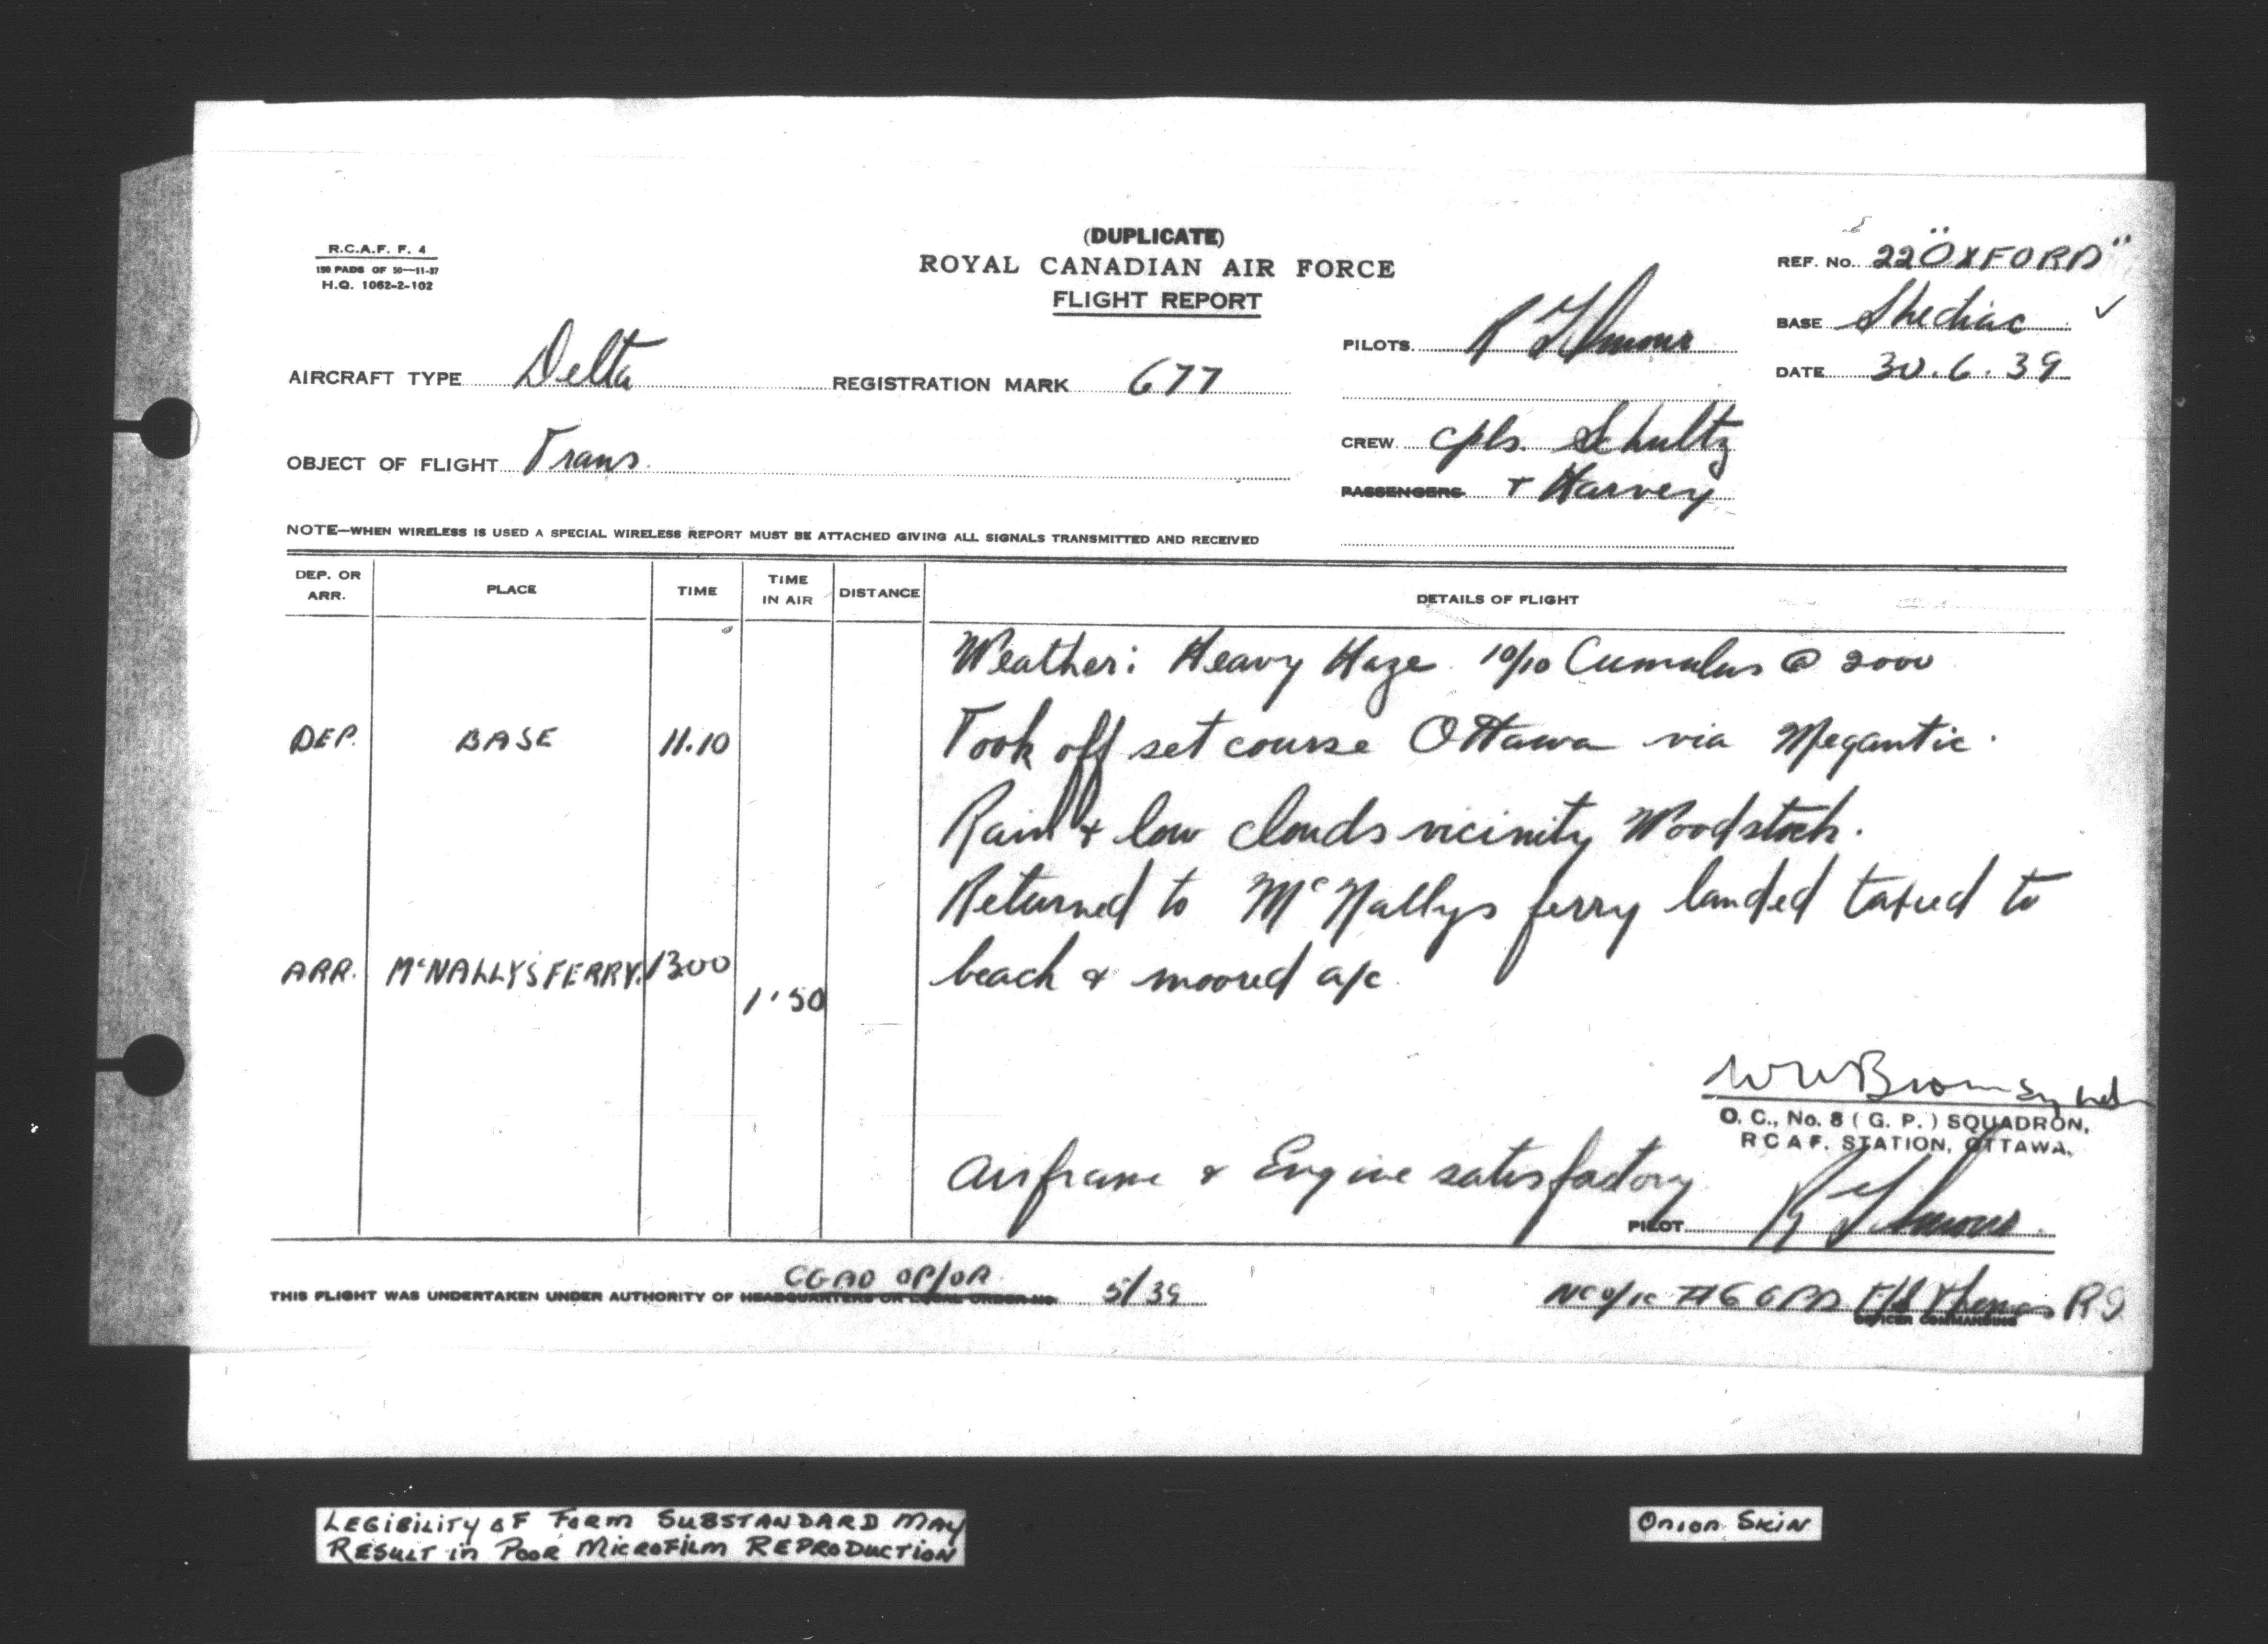 (DUPLICATE)
ROYAL CANADIAN AIR FORCE
FLIGHT REPORT
R.C.A.F. F. 4
150 PADS OF 50—11-37
H.Q. 1062-2-102
REF. NO. 22 "OXFORD"
BASE Shediac ✓
DATE 30.6.39
PILOTS R
AIRCRAFT TYPE Delta REGISTRATION MARK 677
OBJECT OF FLIGHT Trans.
CREW cpls. Schultz
PASSENGERS + Harvey
NOTE—WHEN WIRELESS IS USED A SPECIAL WIRELESS REPORT MUST BE ATTACHED GIVING ALL SIGNALS TRANSMITTED AND RECEIVED
DEP. OR ARR. PLACE TIME TIME IN AIR DISTANCE DETAILS OF FLIGHT
Weather: Heavy Haze. 10/10 Cumulus @ 2000
DEP. BASE 11.10 Took off set course Ottawa via Megantic.
Rain & low clouds vicinity Woodstock.
Returned to McNallys ferry landed taxied to
ARR. McNALLY'S FERRY. 1300 beach & moored a/c
1'50
W Brown
O. C., No. 8 ( G. P. ) SQUADRON,
R C A F. STATION, OTTAWA.
Airframe & Engine satisfactory
PILOT R
CGAO OP/OR
THIS FLIGHT WAS UNDERTAKEN UNDER AUTHORITY OF HEADQUARTERS OR LOCAL ORDER NO. 5/39
OFFICER COMMANDING
LEGIBILITY OF FORM SUBSTANDARD MAY
RESULT in POOR MICROFILM REPRODUCTION
Onion SKIN